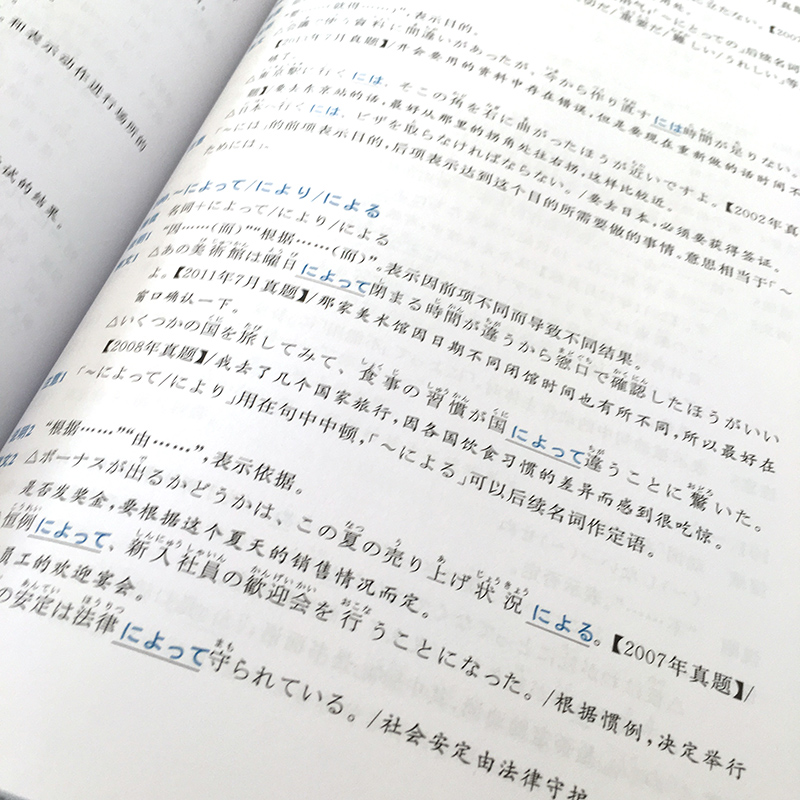 和表示动作进行场所的
试的结果。
表示目的。
間違いがあったが、今から作り直すには時間が足りない。
【2011年7月真题】/开会要用的资料中存在错误，但是要现在重新做的话时间不
行くには、そこの角を右に曲がったほうが近いですよ。【2002年真
题】/要去东京站的话，最好从那里的拐角处往右拐，这样比较近。
△日本へ行くには、ビザを取らなければならない。/要去日本，必须要获得签证。
「～には」的前项表示目的，后项表示达到这个目的所需要做的事情。意思相当于「～
ためには」。
～によって/により/による
名词＋によって/により/による
“因……（而）”“根据……（而）”。表示因前项不同而导致不同结果。
△あの美術館は曜日によって閉まる時間が違うから窓口で確認したほうがいい
よ。【2011年7月真题】/那家美术馆因日期不同闭馆时间也有所不同，所以最好在
窗口确认一下。
△いくつかの国を旅してみて、食事の習慣が国によって違うことに驚いた。
【2008年真题】/我去了几个国家旅行，因各国饮食习惯的差异而感到很吃惊。
「～によって/により」用在句中中顿，「～による」可以后续名词作定语。
“根据……”“由……”，表示依据。
△ボーナスが出るかどうかは、この夏の売り上げ状況による。【2007年真题】/
是否发奖金，要根据这个夏天的销售情况而定。
慣例によって、新入社員の歓迎会を行うことになった。/根据惯例，决定举行
员工的欢迎宴会。
の安定は法律によって守られている。/社会安定由法律守护